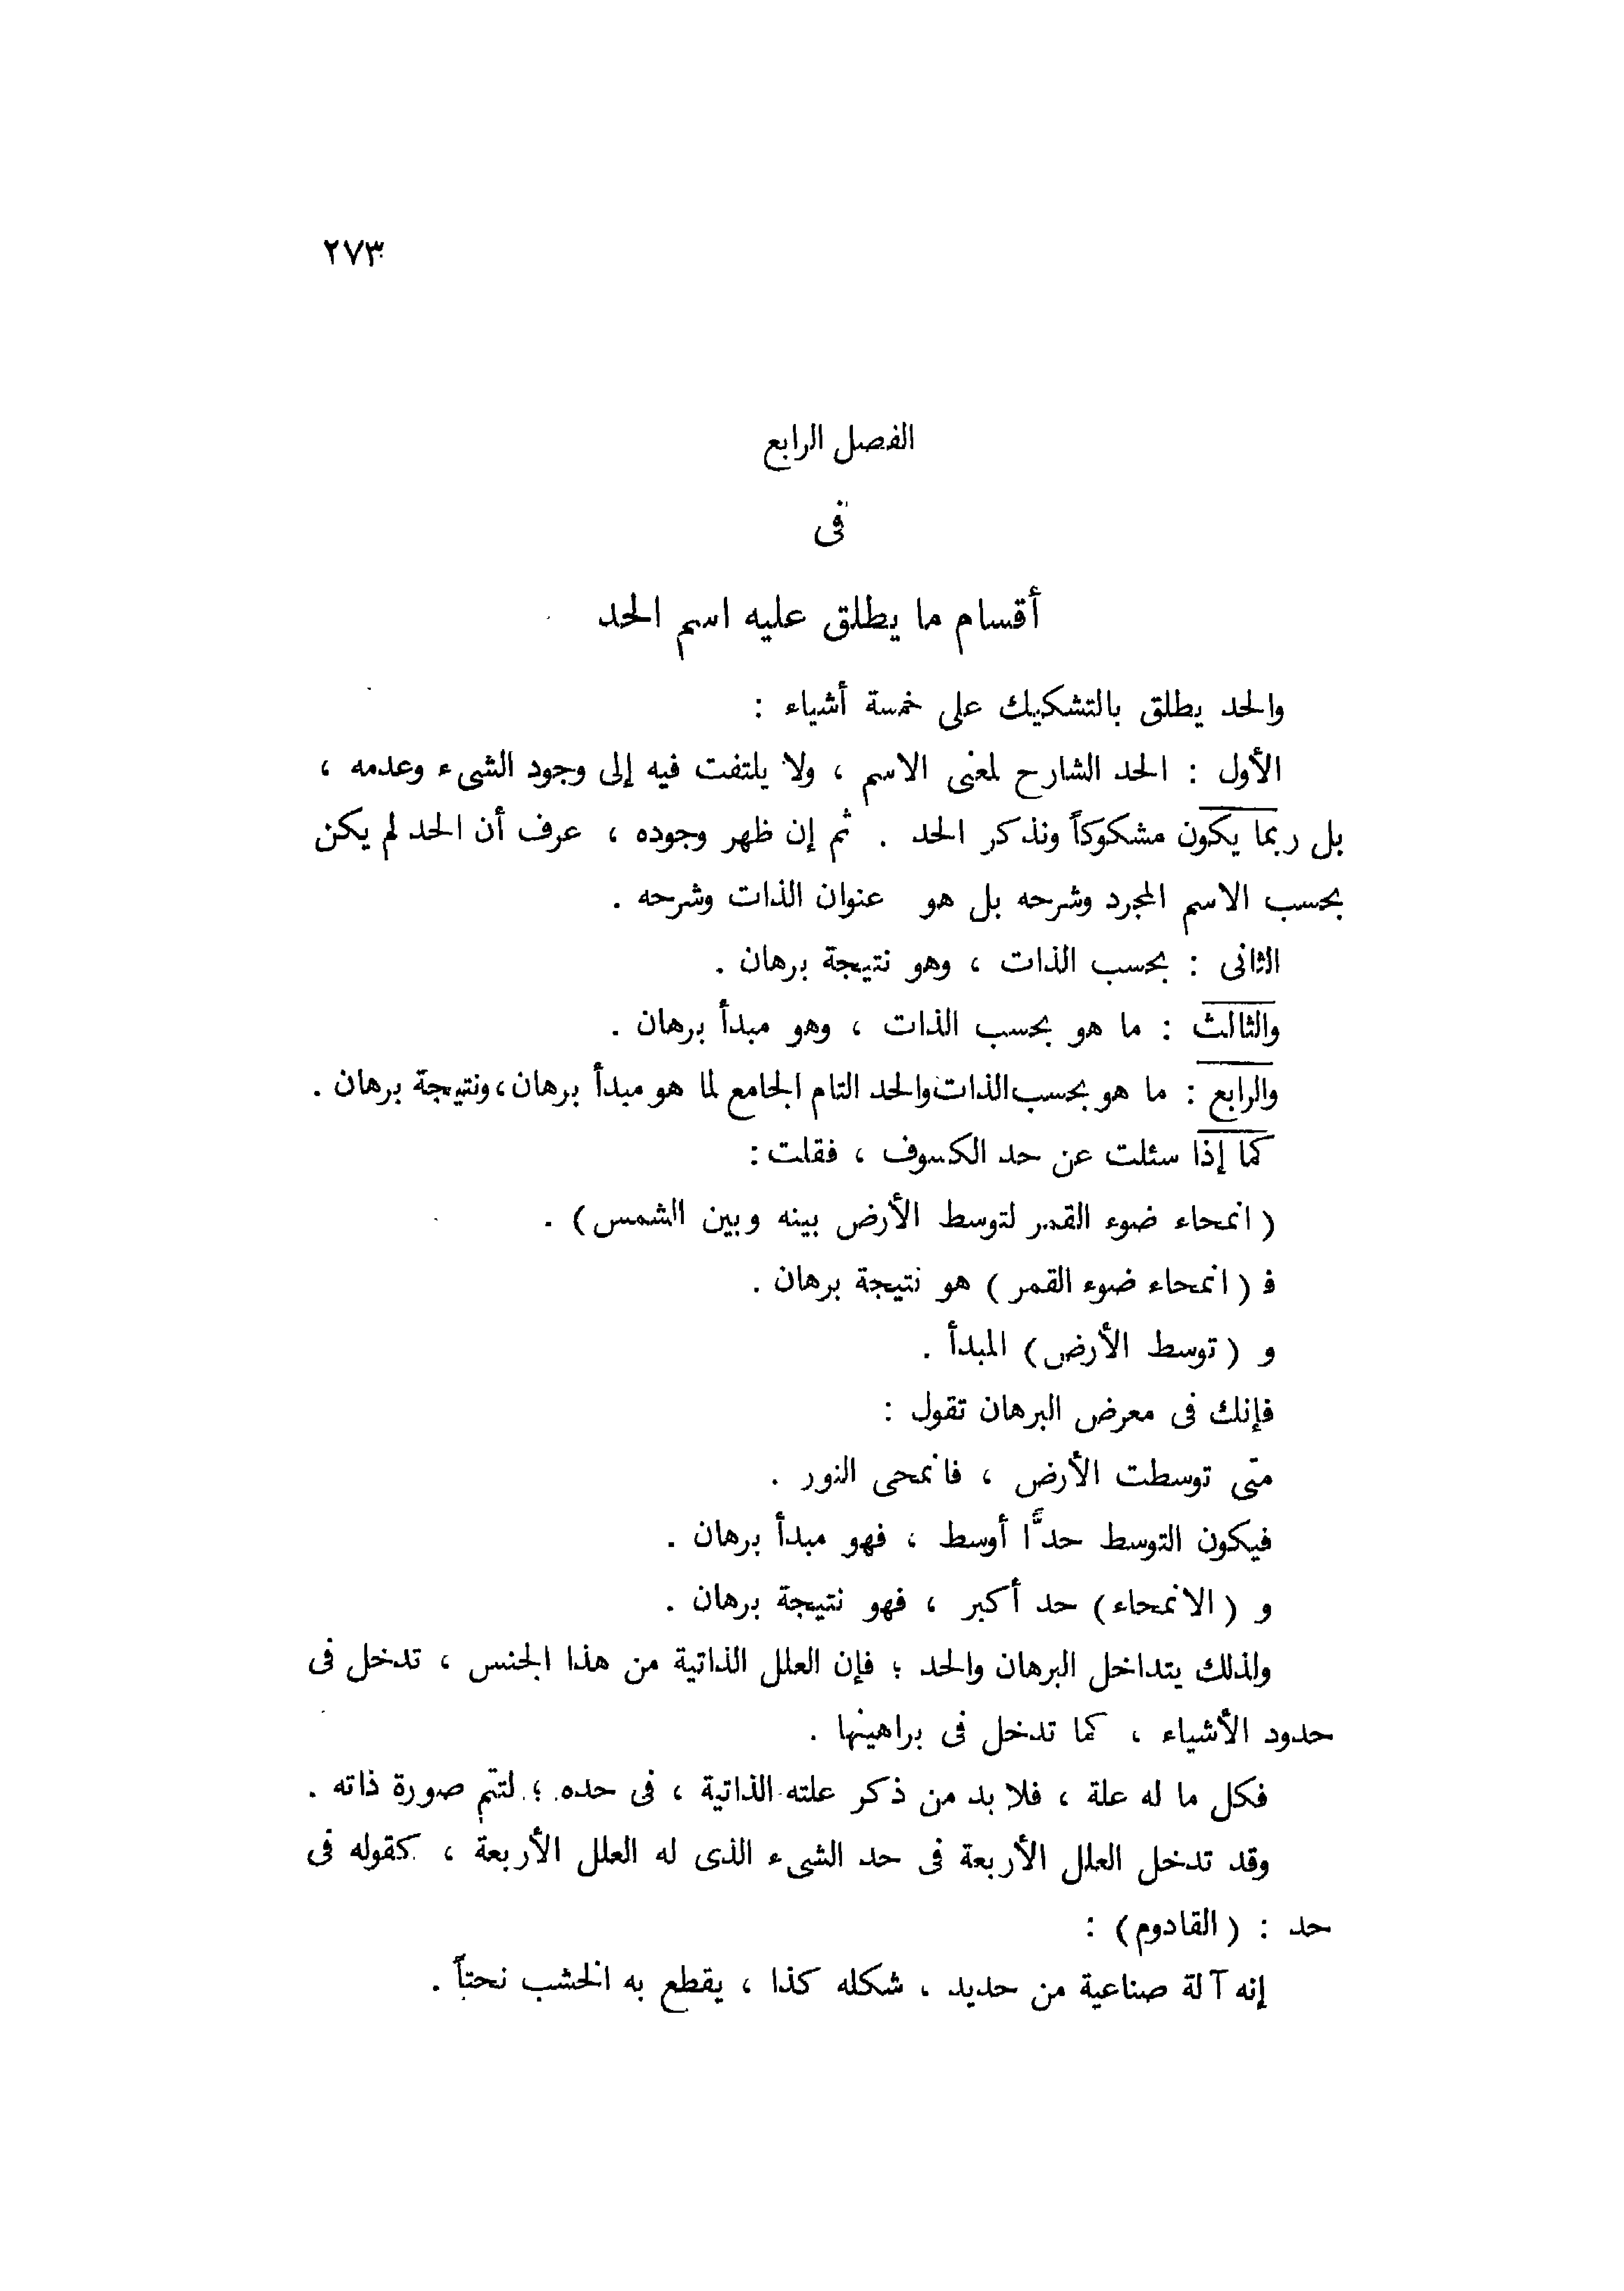 ٢٧٣
الفصل الرابع
فى
أقسام ما يطلق عليه اسم الحد
والحد يطلق بالتشكيك على خمسة أشياء :
الأول : الحد الشارح لمعنى الاسم ، ولا يلتفت فيه إلى وجود الشىء وعدمه ،
بل ربما يكون مشكوكاً ونذكر الحد . ثم إن ظهر وجوده ، عرف أن الحد لم يكن
بحسب الاسم المجرد وشرحه بل هو عنوان الذات وشرحه .
الثانى : بحسب الذات ، وهو نتيجة برهان .
والثالث : ما هو بحسب الذات ، وهو مبدأ برهان .
والرابع : ما هو بحسب الذات والحد التام الجامع لما هو مبدأ برهان ، ونتيجة برهان .
كما إذا سئلت عن حد الكسوف ، فقلت :
( انمحاء ضوء القمر لتوسط الأرض بينه وبين الشمس ) .
فـ ( انمحاء ضوء القمر ) هو نتيجة برهان .
و ( توسط الأرض ) المبدأ .
فإنك فى معرض البرهان تقول :
متى توسطت الأرض ، فانمحى النور .
فيكون التوسط حدًّا أوسط ، فهو مبدأ برهان .
و ( الانمحاء ) حد أكبر ، فهو نتيجة برهان .
ولذلك يتداخل البرهان والحد ؛ فإن العلل الذاتية من هذا الجنس ، تدخل فى
حدود الأشياء ، كما تدخل فى براهينها .
فكل ما له علة ، فلا بد من ذكر علته الذاتية ، فى حده ؛ لتتم صورة ذاته .
وقد تدخل العلل الأربعة فى حد الشىء الذى له العلل الأربعة ، كقوله فى
حد : ( القادوم ) :
إنه آلة صناعية من حديد ، شكله كذا ، يقطع به الخشب نحتاً .